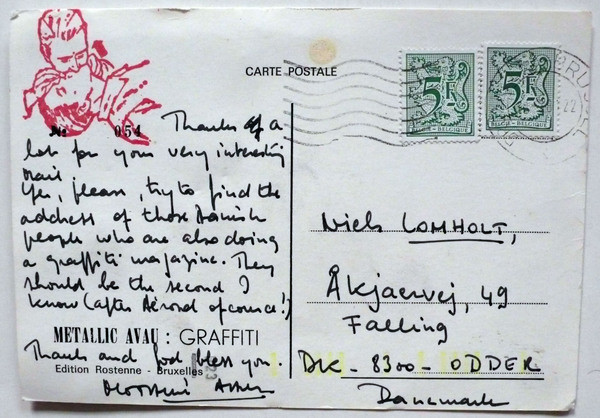 CARTE POSTALE
No 054
Thanks a
lot for your very interesting
mail
Yes, please, try to find the
address of those Danish
people who are also doing
a graffiti magazine. They
should be the second I
know (after Aérosol of course!)
METALLIC AVAU : GRAFFITI
Thanks and God bless you.
Edition Rostenne - Bruxelles
5F
BELGIE - BELGIQUE
5F
BELGIE - BELGIQUE
22
Niels LOMHOLT,
Åkjaervej, 49
Falling
DK - 8300 - ODDER
Danemark